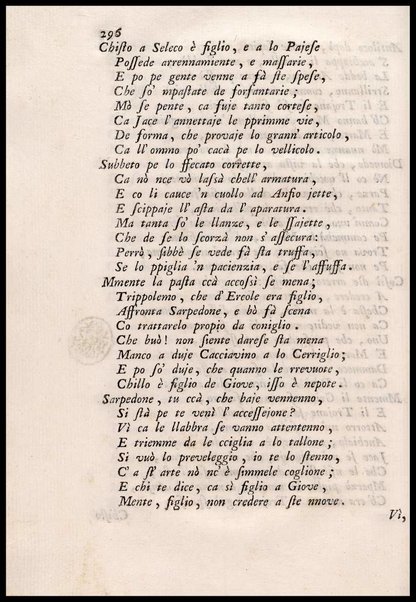 296
Chisto a Seleco è figlio, e a lo Pajese
Possede arrennamiente, e massarie,
E po pe gente venne a fà ste spese,
Che so' mpastate de forfantarie;
Mò se pente, ca fuje tanto cortese,
Ca Jace l'annettaje le pprimme vie,
De forma, che provaje lo grann' articolo,
Ca ll'ommo po' cacà pe lo vellicolo.
Subbeto pe lo ffecato corrette,
Ca nò nce vò lassà chell'armatura,
E co li cauce 'n cuollo ad Anfio jette,
E scippaje ll'asta da l'aparatura.
Ma tanta so' le llanze, e le ssajette,
Che de se lo scorzà non s'assecura:
Perrò, sibbè se vede fà sta truffa,
Se lo ppiglia 'n pacienzia, e se l'affuffa.
Mmente la pasta ccà accossì se mena;
Trippolemo, che d'Ercole era figlio,
Affronta Sarpedone, e bò fà scena
Co trattarelo propio da coniglio.
Che buò! non siente darese sta mena
Manco a duje Cacciavino a lo Cerriglio;
E po so' duje, che quanno le rrevuote,
Chillo è figlio de Giove, isso è nepote.
Sarpedone, tu ccà, che baje vennenno,
Si stà pe te venì l'accessejone?
Vì ca le llabbra se vanno attentenno,
E triemme da le cciglia a lo tallone;
Si vuò lo preveleggio, io te lo stenno,
C'a st'arte nò nc'è simmele coglione;
E chi te dice, ca sì figlio a Giove,
Mente, figlio, non credere a ste nnove.
Vì,